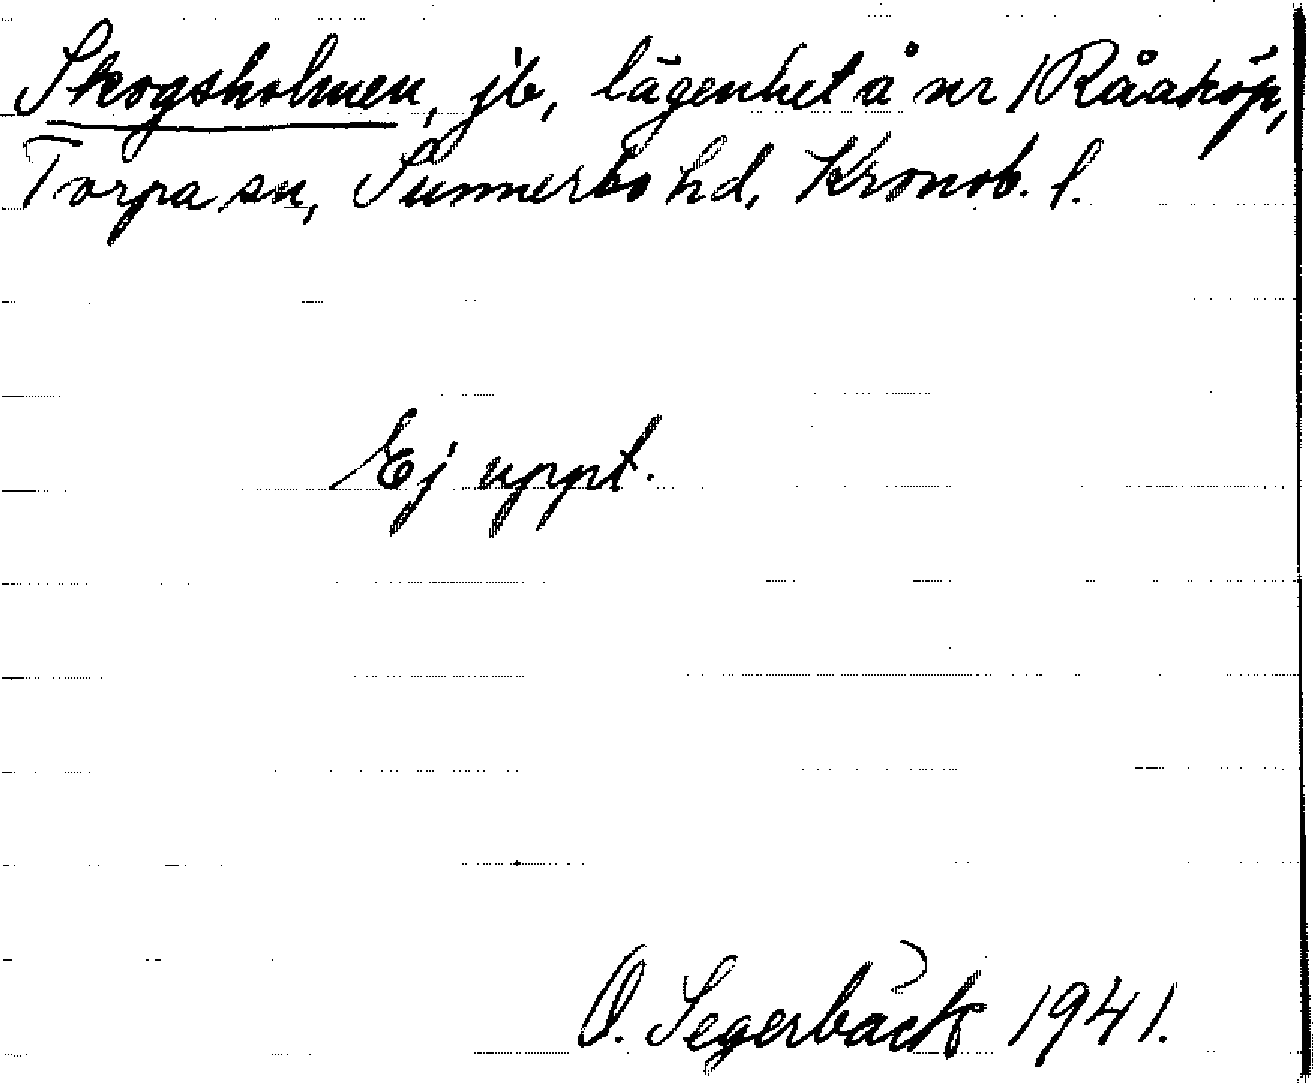 Skogsholmen, jb, lägenhet å nr 1 Råaköp,
Torpa sn, Sunnerbo hd, Kronob. l.
Ej uppt.
O. Segerbäck 1941.